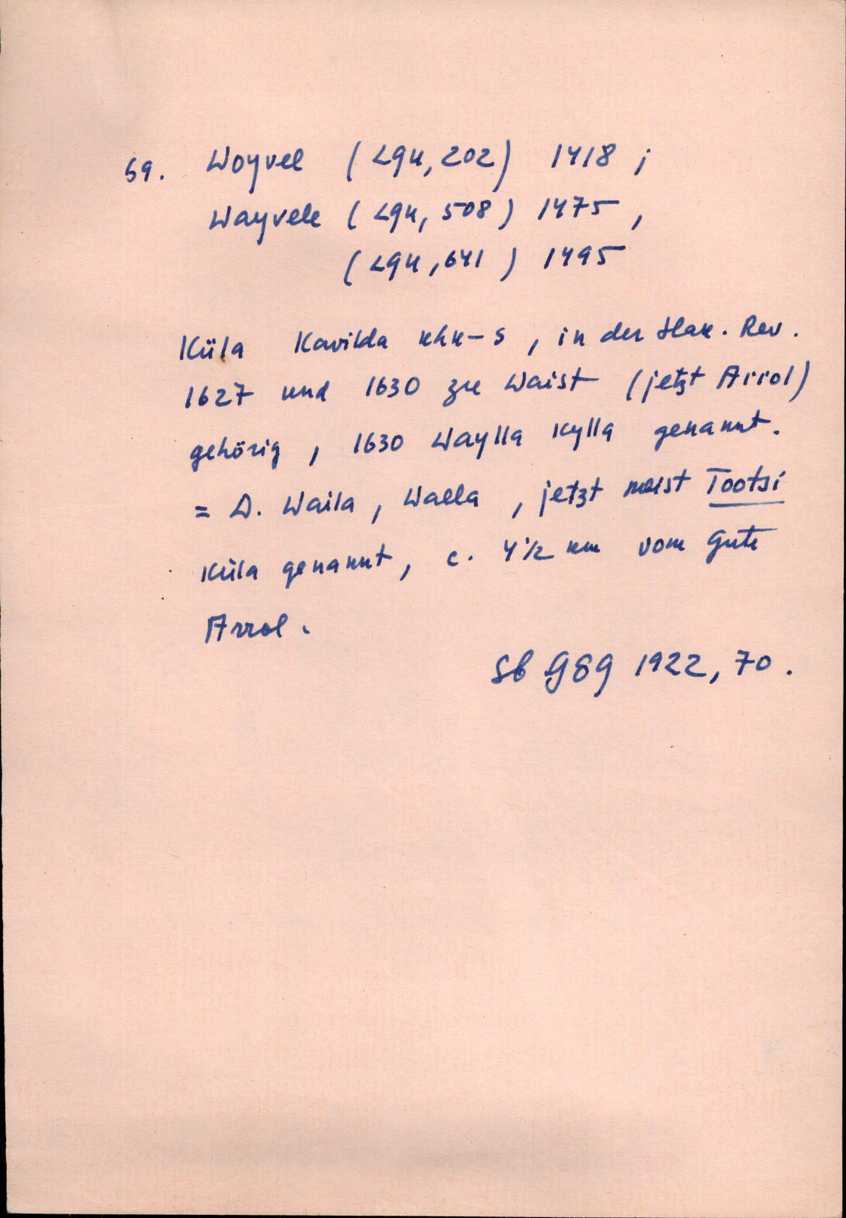 59. Woyvel (LgU, 202) 1418 ;
Wayvele (LgU, 508) 1475 ,
(LgU, 641) 1495
Küla Kavilda khk-s , in der Hak. Rev.
1627 und 1630 zu Waist (jetzt Arrol)
gehörig , 1630 Waylla Kylla genannt.
= D. Waila , Waela , jetzt meist Tootsi
Küla genannt, c. 4 1/2 km vom Gute
Arrol.
Sb GEG 1922, 70.